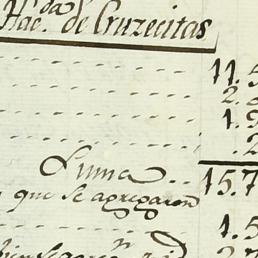 Hac.da de Cruzecitas
11.5
2.
1.9
.2
Suma
15.7
que se agregaron
1.5
2.7